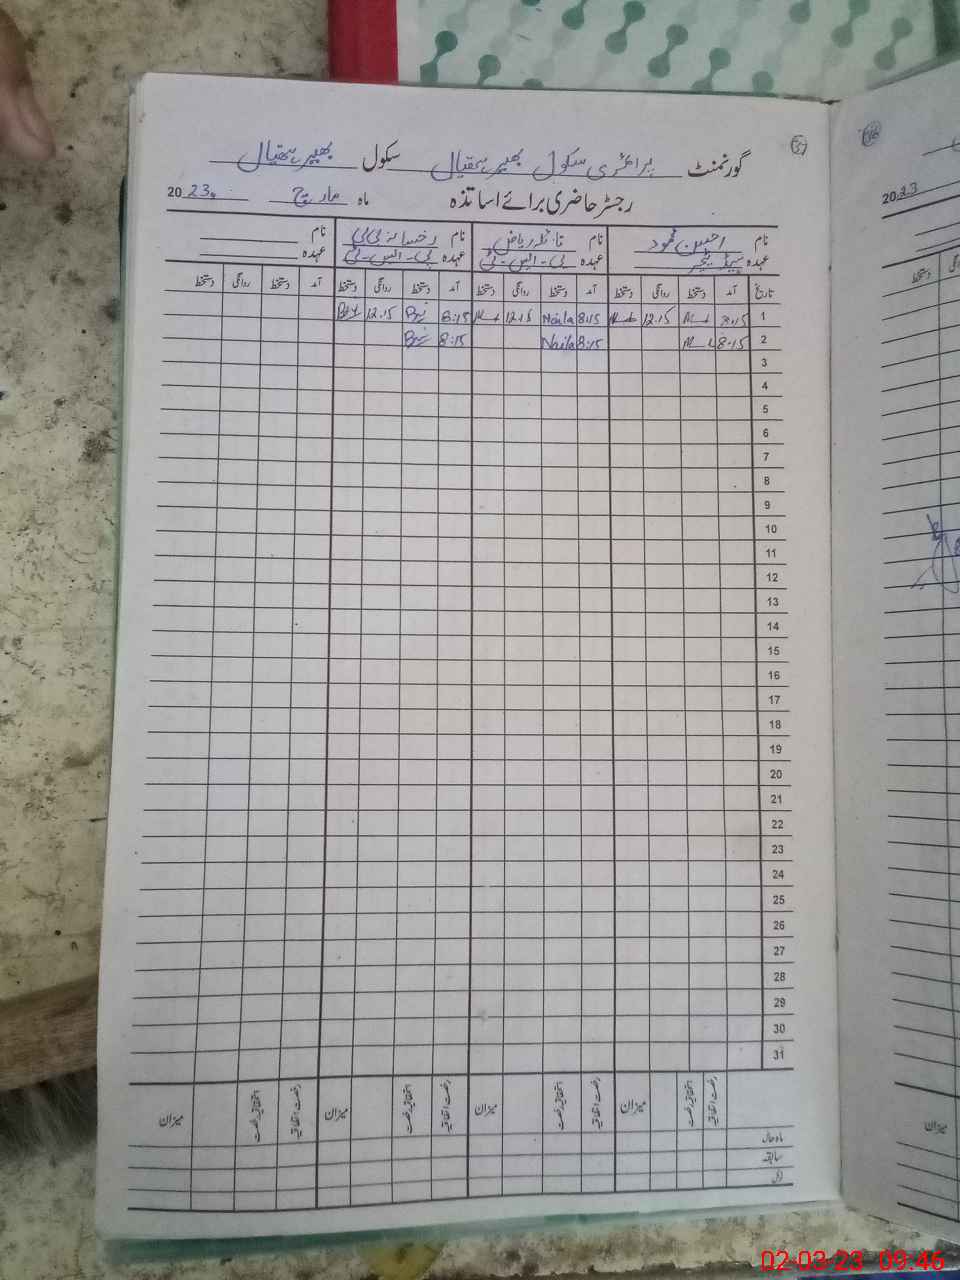 37
گورنمنٹ پرائمری سکول بھیرہتھیال سکول بھیرہتھیال
رجسٹر حاضری برائے اساتذہ ماہ مارچ 2023
نام نام نائلہ ریاض نام رخسانہ بی بی نام
عہدہ ہیڈ ٹیچر عہدہ پی۔ایس۔ٹی عہدہ پی۔ایس۔ٹی عہدہ
تاریخ آمد دستخط روانگی دستخط آمد دستخط روانگی دستخط آمد دستخط روانگی دستخط آمد دستخط روانگی دستخط
1 8:15 12.15 8:15 Naila 12.15 8:15 12.15
2 8:15 8:15 Naila 8:15
3
4
5
6
7
8
9
10
11
12
13
14
15
16
17
18
19
20
21
22
23
24
25
26
27
28
29
30
31
رخصت اتفاقیہ استحقاقیہ رخصت میزان رخصت اتفاقیہ استحقاقیہ رخصت میزان رخصت اتفاقیہ استحقاقیہ رخصت میزان رخصت اتفاقیہ استحقاقیہ رخصت میزان
ماہ حال
سابقہ
کل
36
2023
دستخط
میزان
02-03-23 09:46